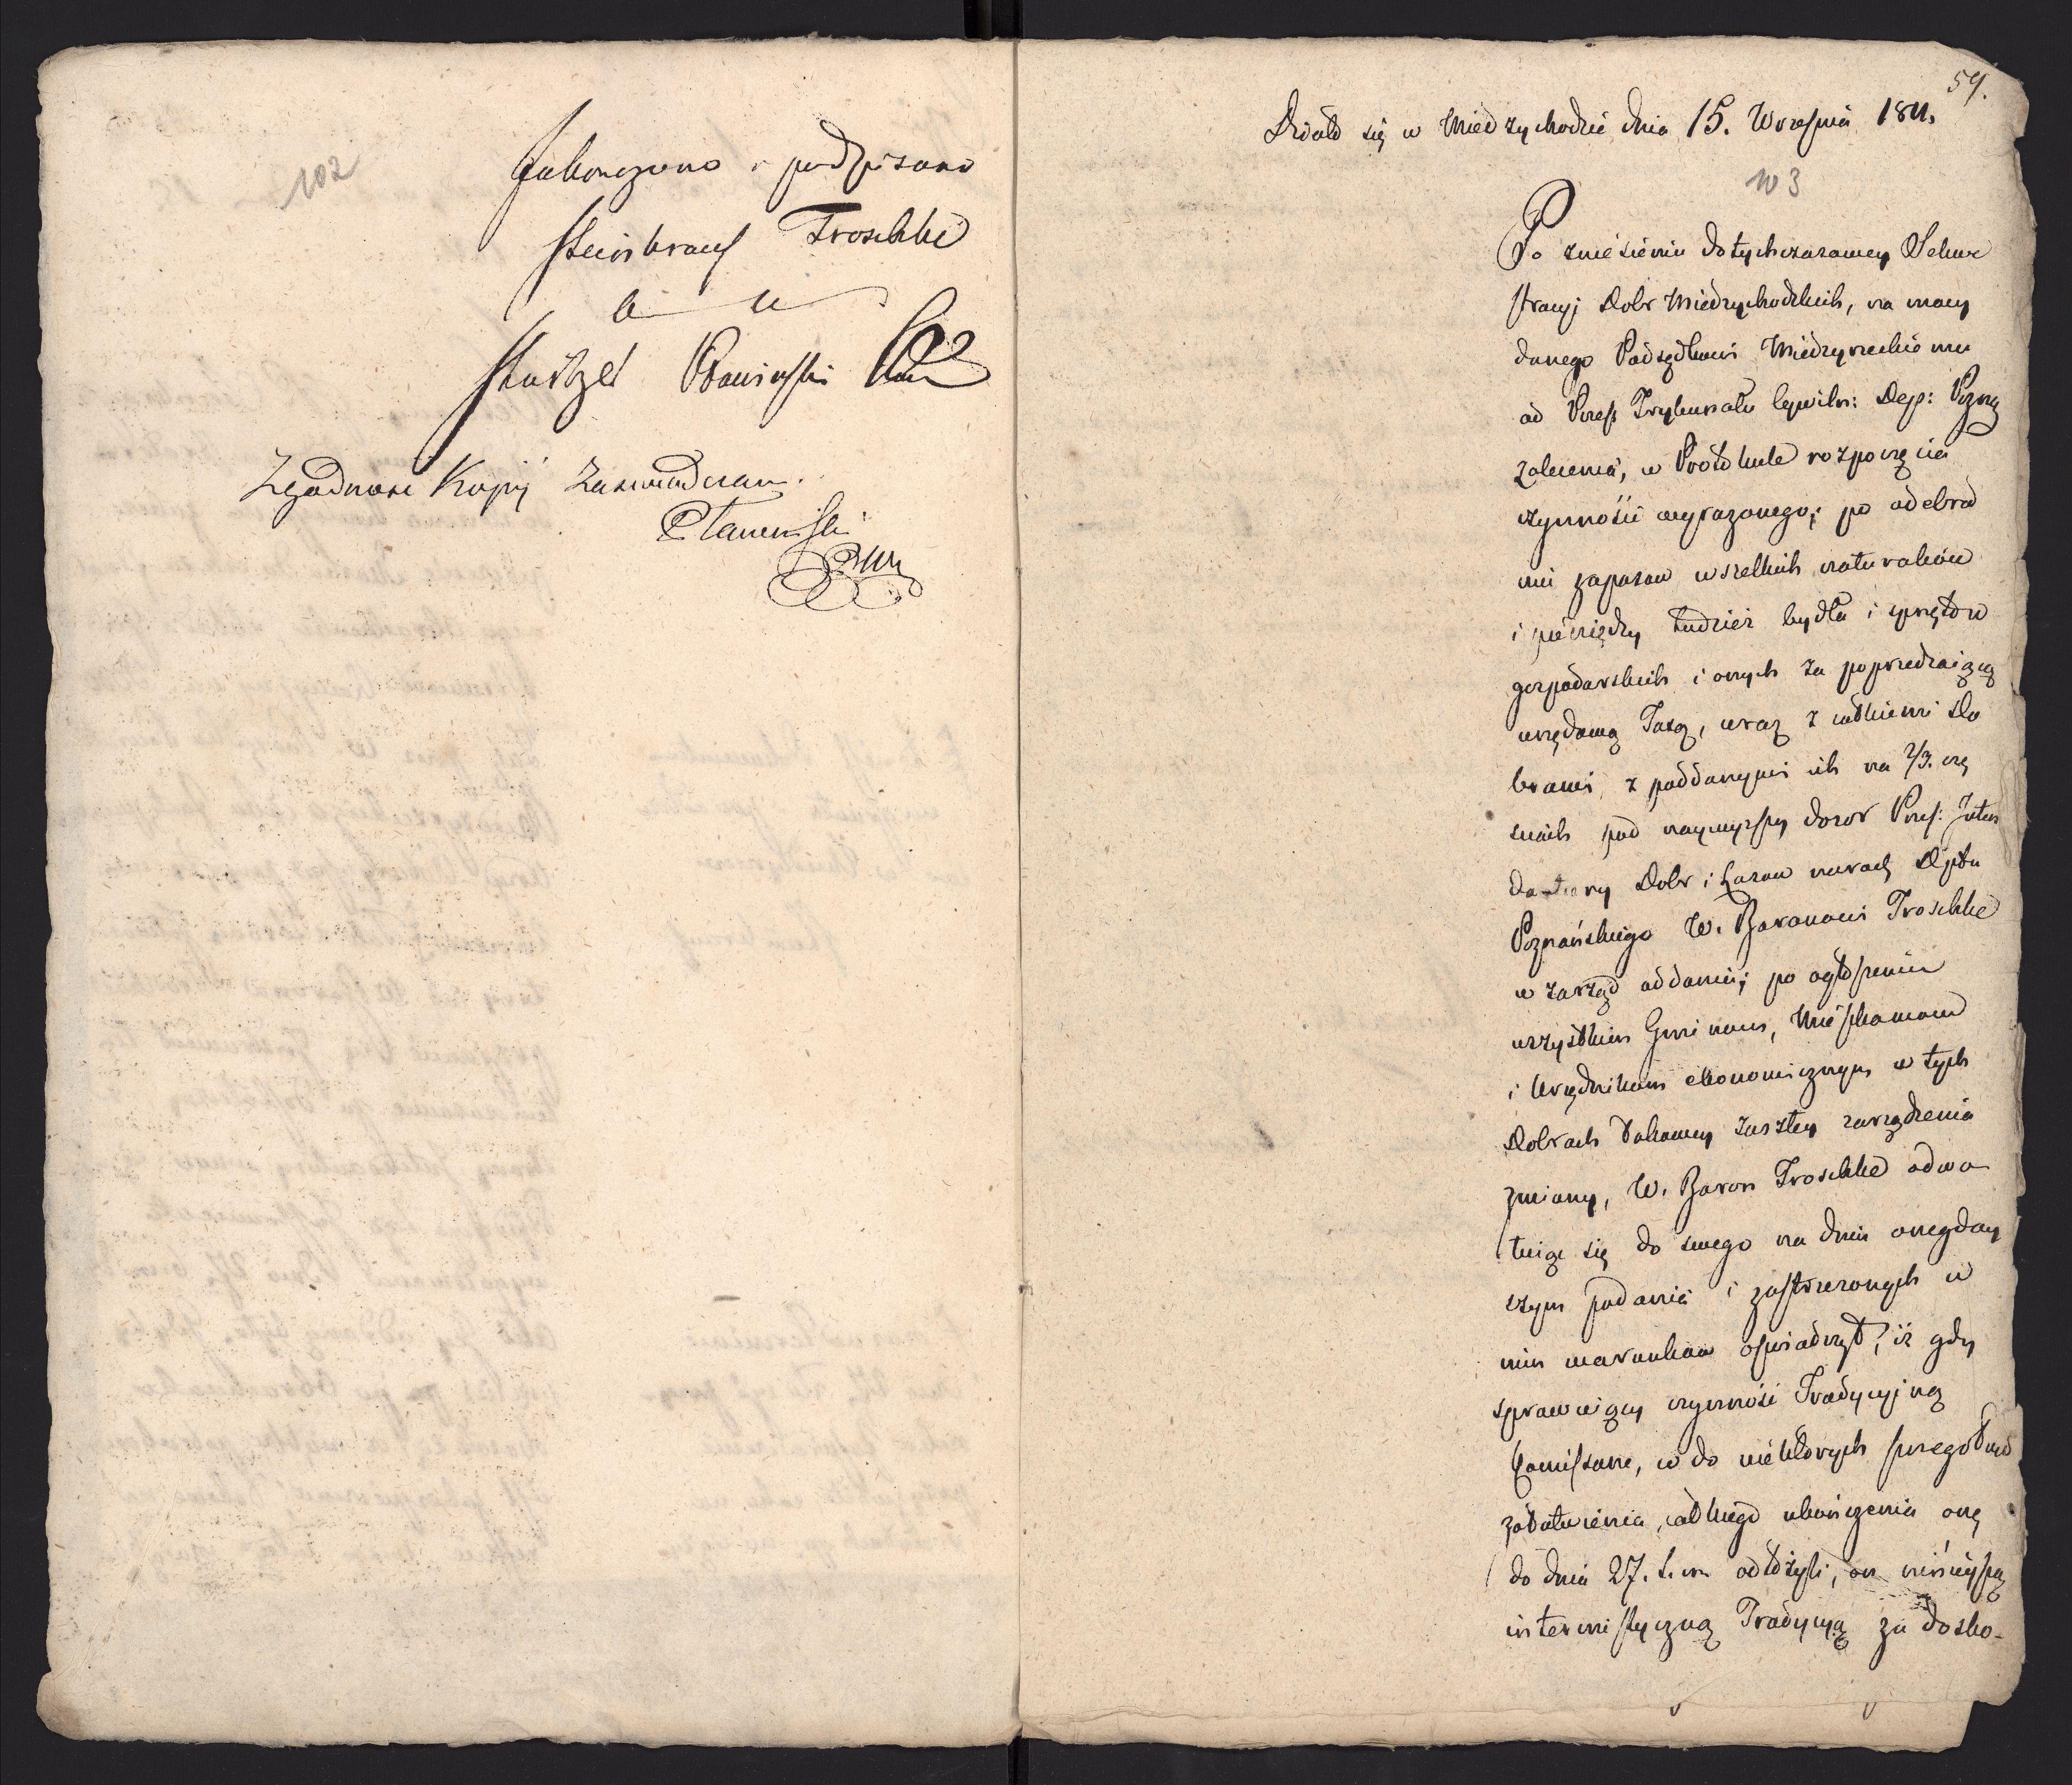 102
Zakonczono i podpisano
Steinkrauss Troschke
Stoitzel Stawinski
Zgodnosc Kopij zaswiadczam.
Stawinski
59.
Działo się w Międzychodzie dnia 15. Wrzesnia 1811.
103
Po zniesieniu dotychczasowey Sekwe
stracyi Dobr Międzychodzkich, na mocy
danego Podsędkowi Międzyrzeckiemu
od Preś: Trybunału Cywiln: Dep: Pozng
zalecenia, w Protokule rozpoczęcia
czynnosci wyrazonego; po odebra
niu zapasow wszelkich naturaliow
i pieniędzy tudzież bydła i sprzętow
gospodarskich i onych za poprzedzaiącą
urzędową Taxą, wraz z całkiemi Do
brami, z poddanymi ich na 2/3. czę
sciach pod naywyższy dozor Preś: Inten
dentury Dobr i Lasow narod: Dptu
Poznańskiego W. Baronowi Troschke
w zarząd oddaniu; po ogłoszeniu
wszystkim Gminom, Mieszkancom
i Urzędnikom ekonomicznym w tych
Dobrach takowey zaszłey zarządzenia
zmiany, W. Baron Troschke odwo
łuiąc się do swego na dniu onegday
szym podania i zastrzezonych w
nim warunkow oswiadczył, iż gdy
sprawuiący czynnosc Tradycyiną
Comissarze, w do niektorych szczegułow
załatwienia, całkiego ukończenia onę
do dnia 27. b. m. odłożyli, on ninieyszą
intermistyczną Tradycyą za dosko-